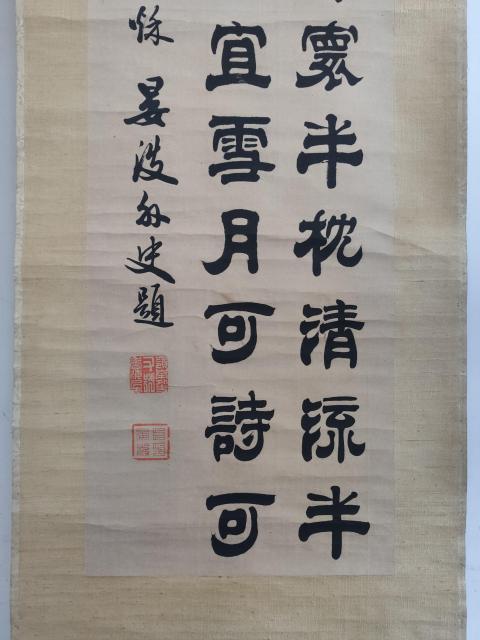 寰半枕清流半
宜雪月可詩可
秌晏波外史題